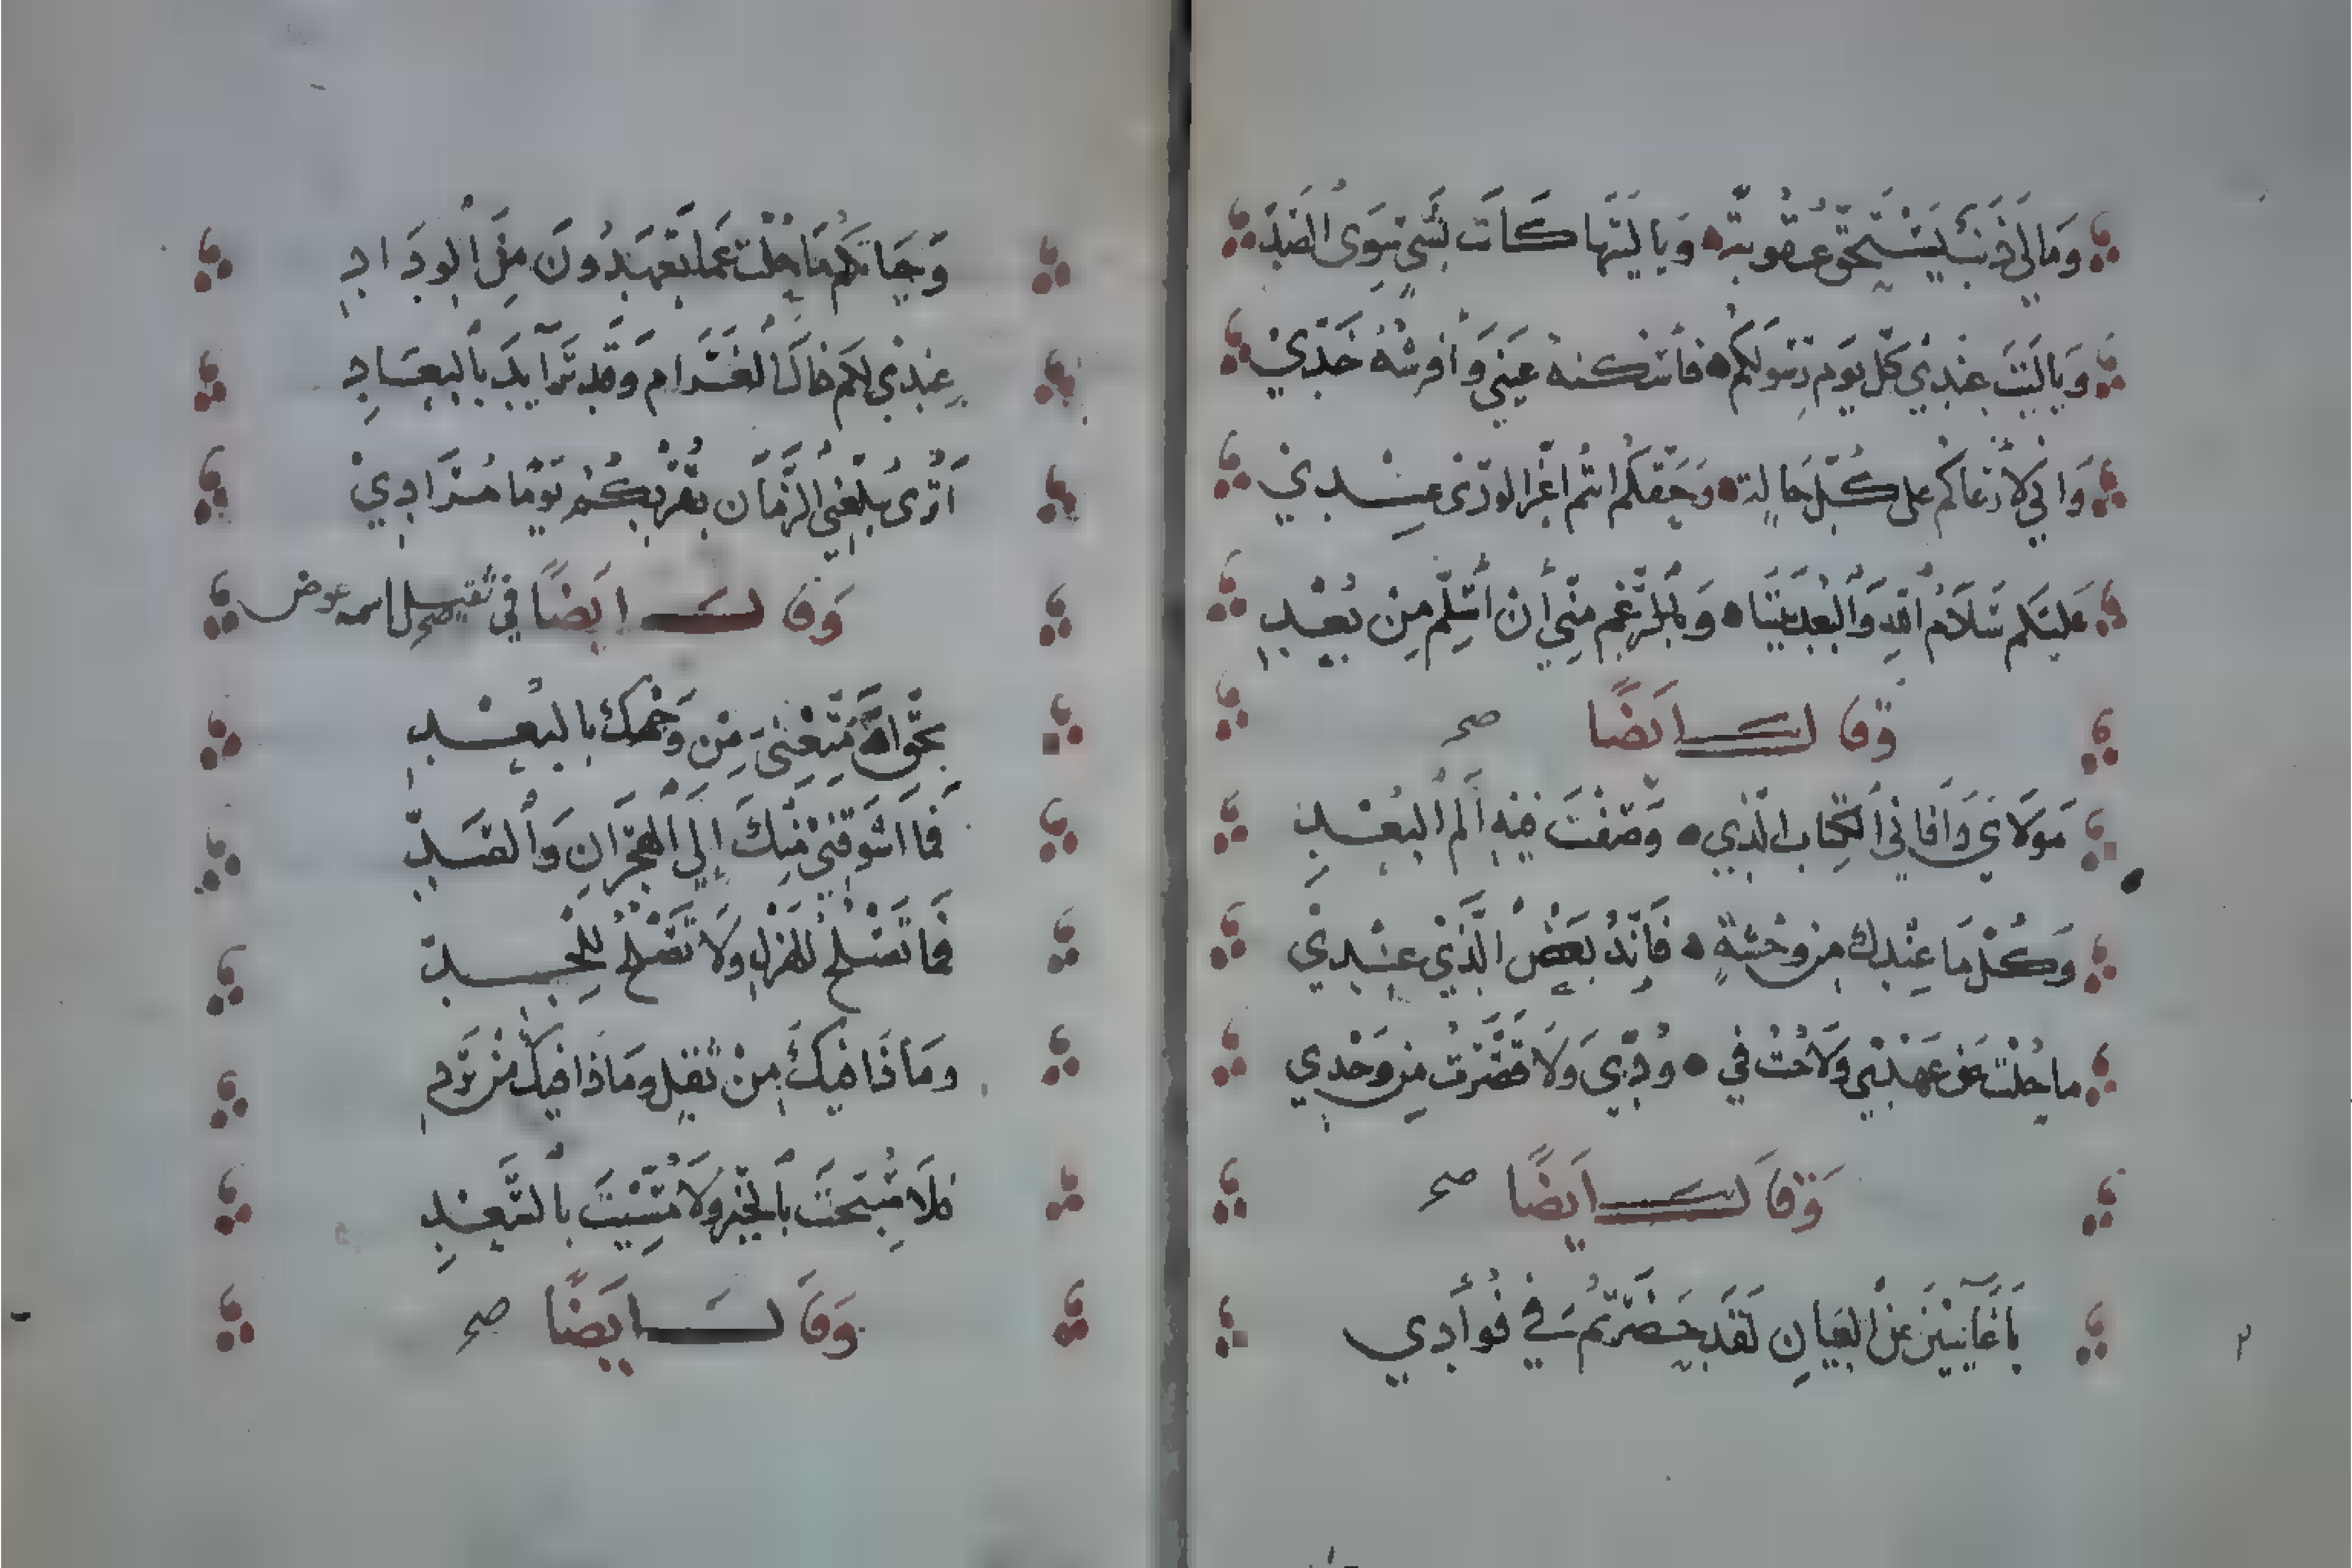 وَمَا لِي ذَنْبٌ يَسْتَحِقُّ عُقُوبَةً وَيَا لَيْتَهَا كَانَتْ بِشَيْءٍ سِوَى الصَّدِّ
وَيَا لَيْتَ عِنْدِي كُلَّ يَوْمٍ رَسُولَكُمْ فَأُسْكِنُهُ عَيْنِي وَأُفْرِشُهُ خَدِّي
وَإِنِّي لَأَرْعَاكُمْ عَلَى كُلِّ حَالَةٍ وَحَقِّكُمُ أَنْتُمْ أَعَزُّ الْوَرَى عِنْدِي
عَلَيْكُمْ سَلَامُ اللهِ وَالْبُعْدُ بَيْنَنَا وَبِالرَّغْمِ مِنِّي أَنْ أُسَلِّمَ مِنْ بُعْدِ
وَقَالَ أَيْضًا صح
مَوْلَايَ وَافَانِي الْكِتَابُ الَّذِي وَصَفْتَ فِيهِ أَلَمَ الْبُعْدِ
وَكُلُّ مَا عِنْدَكَ مِنْ وَحْشَةٍ فَإِنَّهُ بَعْضُ الَّذِي عِنْدِي
مَا حُلْتُ عَنْ عَهْدِي وَلَا خُنْتُ فِي وُدِّي وَلَا قَصَّرْتُ مِنْ وَجْدِي
وَقَالَ أَيْضًا صح
يَا غَائِبِينَ عَنِ الْعِيَانِ لَقَدْ حَضَرْتُمْ فِي فُؤَادِي
وَحَيَاتِكُمْ مَا حُلْتُ عَمَّا تَعْهَدُونَ مِنَ الْوِدَادِ
عِنْدِي لَكُمْ ذَاكَ الْغَرَامُ وَقَدْ تَزَايَدَ بِالْبِعَادِ
أَتُرَى يُبَلِّغُنِي الزَّمَانُ بِقُرْبِكُمْ يَوْمًا مُرَادِي
وَقَالَ أَيْضًا فِي ثقيل اسمه عوض صح
بِحَقِّ اللهِ مَتِّعْنِيَ مِنْ وَجْهِكَ بِالْبُعْدِ
فَمَا أَشْوَقَنِي مِنْكَ إِلَى الْهِجْرَانِ وَالصَّدِّ
فَمَا تَصْلُحُ لِلْهَزْلِ وَلَا تَصْلُحُ لِلْجِدِّ
وَمَاذَا فِيكَ مِنْ ثِقَلٍ وَمَاذَا فِيكَ مِنْ بَرْدِ
فَلَا صُبِّحْتَ بِالْخَيْرِ وَلَا مُسِّيتَ بِالسَّعْدِ
وَقَالَ أَيْضًا صح